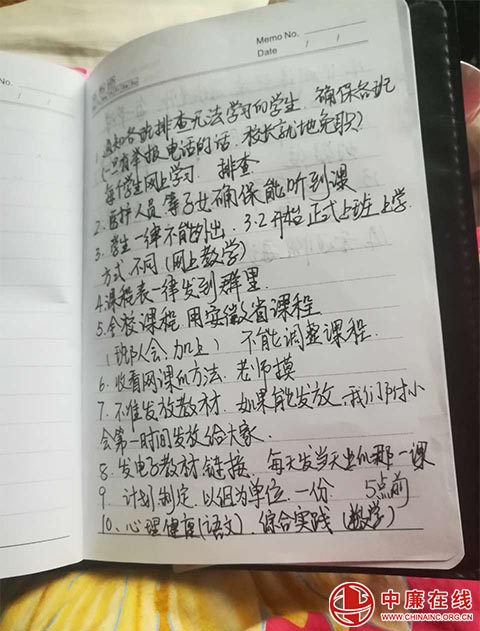 Memo No.
Date / /
No.
1. 通知各班排查无法学习的学生. 确保各班
(一旦有举报电话的话. 校长就地免职)
每个学生网上学习. 排查
2. 医护人员等子女确保能听到课
3. 学生一律不能外出. 3.2开始正式上班上学.
方式不同(网上教学)
4. 课程表一律发到群里.
5. 全校课程 用安徽省课程
(班队会.加上) 不能调整课程.
6. 收看网课的方法. 老师摸
7. 不准发放教材. 如果能发放.我们
会第一时间发放给大家.
8. 发电子教材链接. 每天发当天上的那一课
9. 计划制定. 以组为单位. 一份 5点前
10、心理健康(语文). 综合实践(数学)
中廉在线
WWW.CHINAINC.ORG.CN